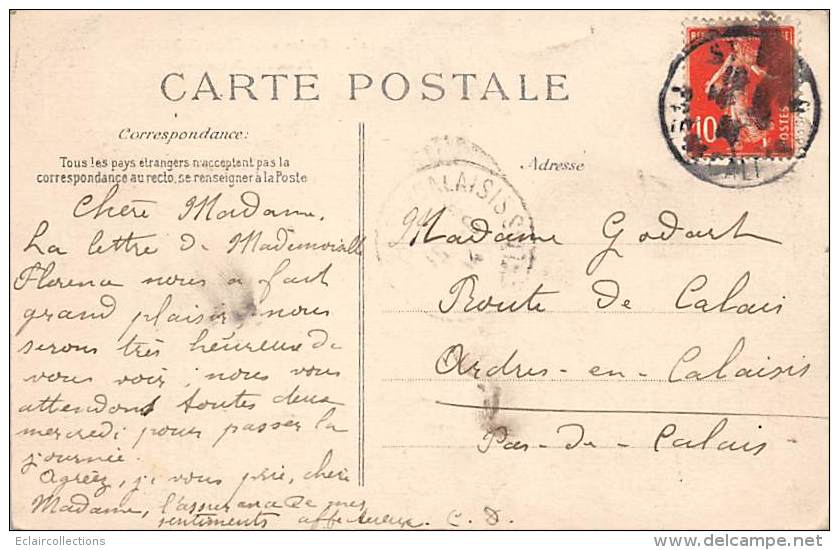 CARTE POSTALE
Correspondance:
Tous les pays étrangers n'acceptent pas la
correspondance au recto, se renseigner à la Poste
Chère Madame,
La lettre de Mademoiselle
Florence nous a fait
grand plaisir, nous
serons très heureux de
vous voir; nous vous
attendons toutes deux
mercredi pour passer la
journée.
Agréez, je vous prie, chère
Madame, l'assurance de mes
sentiments affectueux. C. D.
Adresse
Madame Godart
Route de Calais
Ardres-en-Calaisis
Pas-de-Calais
10
POSTES
CALAISIS
Eclaircollections
www.delcampe.net